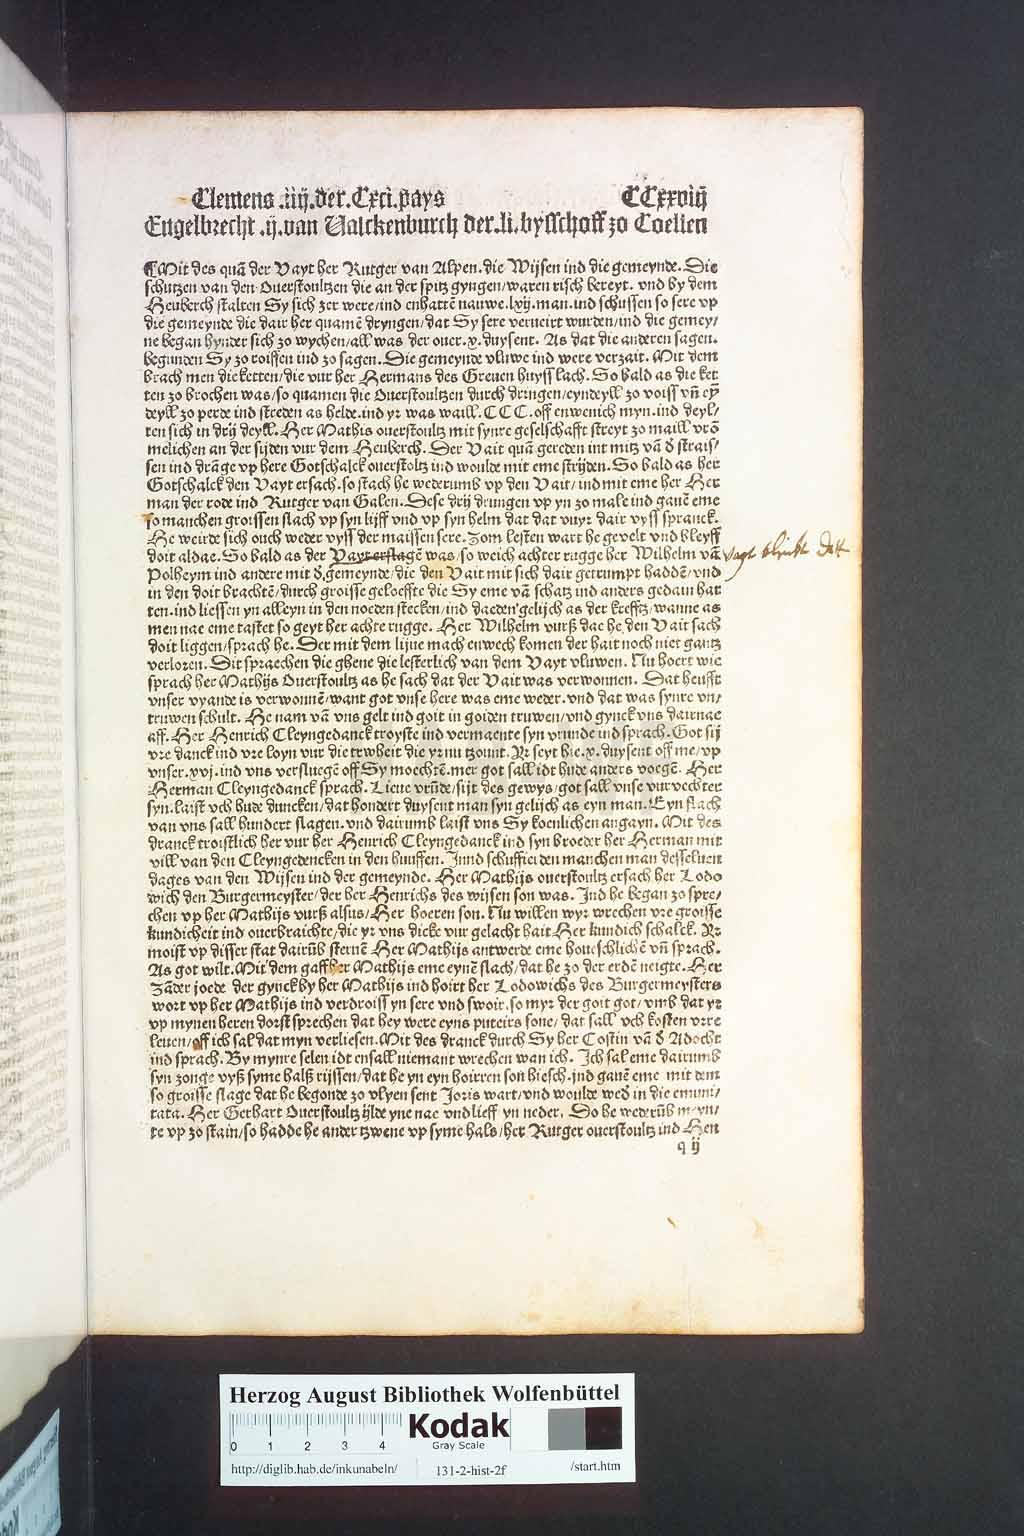 Clemens .iiij.der.Cxci.pays CCxxviij
Engelbrecht .ij.van Valckenburch der.li.bysschoff zo Coellen
Mit des quā der Vayt her Rutger van Alpen.die Wijsen ind die gemeynde. Die
schutzen van den Ouerstoultzen die an der spitz gyngen/waren risch bereyt. vnd by dem
Heuberch stalten Sy sich zer were/ind enhattē nauwe.lxij.man.ind schussen so sere vp
die gemeynde die dair her quamē dryngen/dat Sy sere verueirt wurden/ind die gemey/
ne began hynder sich zo wychen/all was der ouer.x.duysent. As dat die anderen sagen.
begunden Sy zo roiffen ind zo sagen. Die gemeynde vluwe ind were verzait. Mit dem
brach men die ketten/die vur her Hermans des Greuen huyss lach. So bald as die ket
ten zo brochen was/so quamen die Ouerstoultzen durch dringen/eyndeyll zo voiss vn̄ eȳ
deyll zo perde ind streden as helde.ind yr was waill.CCC.off enwenich myn.ind deyl/
ten sich in drij deyll. Her Mathis ouerstoultz mit synre geselschafft streyt zo maill vrō
melichen an der sijden vur dem Heuberch. Der Vait quā gereden int mitz vā d̄ strais/
sen ind drāge vp here Gotschalck ouerstoltz ind woulde mit eme strijden. So bald as her
Gotschalck den Vayt ersach.so stach he wederumb vp den Vait/ind mit eme her Her
man der rode ind Rutger van Galen. Dese drij drungen vp yn zo male ind gauē eme
so manchen groissen slach vp syn lijff vnd vp syn helm dat dat vuyr dair vyss spranck.
He weirde sich ouch weder vyss der maissen sere. Zom lesten wart he gevelt vnd bleyff
doit aldae. So bald as der Vayt erslagē was/so weich achter rugge her Wilhelm vā
Vagt bleibt Dott
Polheym ind andere mit d̄ gemeynde/die den Vait mit sich dair getrumpt haddē/vnd
in den doit brachtē/durch groisse geloeffte die Sy eme vā schatz ind anders gedain hat
ten.ind liessen yn alleyn in den noeden stecken/ind daeden gelijch as der krefftz/wanne as
men nae eme tastet so geyt her achte rugge. Her Wilhelm vurß dae he den Vait sach
doit liggen/sprach he. Der mit dem lijue mach enwech komen der hait noch niet gantz
verloren. Dit spraechen die ghene die lesterlich van dem Vayt vluwen. Nu hoert wie
sprach her Mathijs Ouerstoultz as he sach dat der Vait was verwonnen. Dat heufft
vnser vyande is verwonnē/want got vnse here was eme weder.vnd dat was synre vn/
truwen schult. He nam vā vns gelt ind goit in goiden truwen/vnd gynck vns dairnae
aff. Her Henrich Cleyngedanck troyste ind vermaente syn vrunde ind sprach. Got sij
vre danck ind vre loyn vur die truwheit die yr nu tzount. Yr seyt hie.x.duysent off me/vp
vnser.xvj.ind vns versluegē off Sy moechtē.mer got sall idt hude anders voegē. Her
Herman Cleyngedanck sprach. Lieue vrūde/sijt des gewys/got sall vnse vurvechter
syn.laist vch hude duncken/dat hondert duysent man syn gelijch as eyn man. Eyn slach
van vns sall hundert slagen.vnd dairumb laist vns Sy koenlichen angayn. Mit des
dranck troistlich her vur her Henrich Cleyngedanck ind syn broeder her Herman mit
vill van den Cleyngedencken in den huuffen. Innd schuffierden manchen man desseluen
dages van den Wijsen ind der gemeynde. Her Mathijs ouerstoultz ersach her Lodo
wich den Burgermeyster/der her Henrichs des wijsen son was. Ind he began zo spre/
chen vp her Mathijs vurß alsus/Her hoeren son. Nu willen wyr wrechen vre groisse
kundicheit ind ouerbraichte/die yr vns dicke vur gelacht hait Her kundich schalck. Yr
moist vp disser stat dairūb sternē Her Mathijs antwerde eme houeschlichē vn̄ sprach.
As got wilt. Mit dem gaff her Mathijs eme eynē slach/dat he zo der erdē neigte. Her
Zāder joede der gynck by her Mathijs ind hoirt her Lodowichs des Burgermeysters
wort vp her Mathijs ind verdroiss yn sere vnd swoir.so myr der goit got/vmb dat yr
vp mynen heren dorst sprechen dat hey were eyns puteirs sone/dat sall vch kosten vrre
leuen/off ich sal dat myn verliesen. Mit des dranck durch Sy her Costin vā d̄ Adocht
ind sprach. By mynre selen idt ensall niemant wrechen wan ich. Ich sal eme dairumb
syn zonge vyß syme halß rijssen/dat he yn eyn hoirren son hiesch.jnd gauē eme mit dem
so groisse slage dat he begonde zo vlyen sent Joris wart/vnd woulde wed̄ in die emuni/
tata. Her Gerhart Ouerstoultz ijlde yne nae vnd lieff yn neder. Do he wederūb meyn/
te vp zo stain/so hadde he ander tzwene vp syme hals/her Rutger ouerstoultz ind Hen
q ij
Herzog August Bibliothek Wolfenbüttel
0 1 2 3 4
Kodak
Gray Scale
http://diglib.hab.de/inkunabeln/ 131-2-hist-2f /start.htm